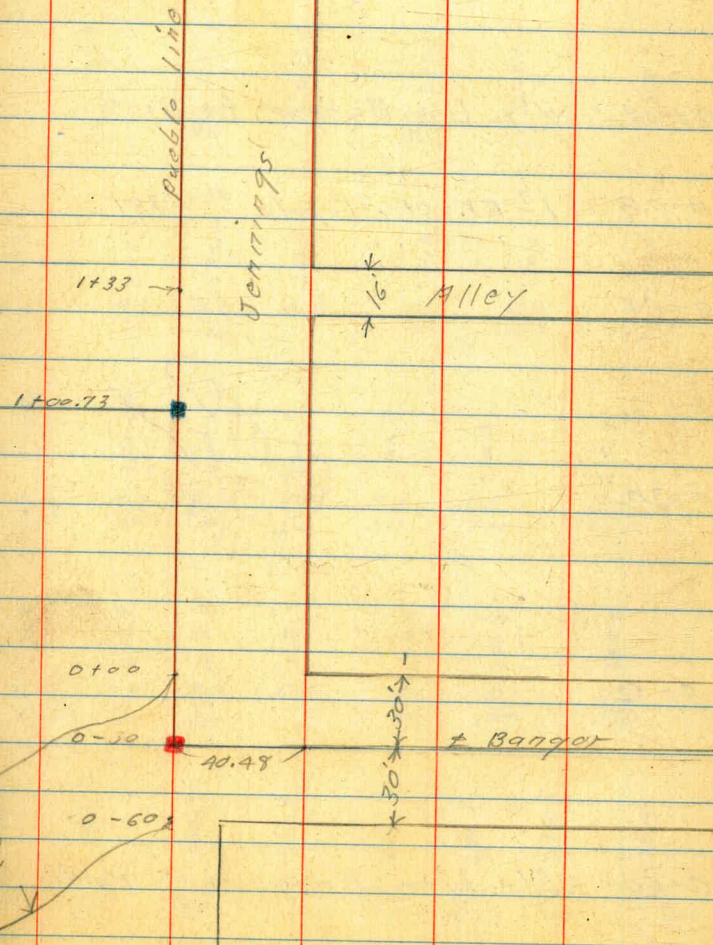 Pueblo line
Jennings
1+33
16'
Alley
1+00.73
0+00
30'
0-30
40.48
Bangor
30'
0-60